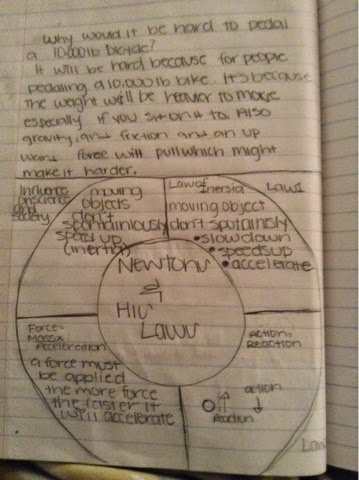 Why would it be hard to pedal
a 10,000 lb bicycle?
It will be hard because for people
pedaling a 10,000 lb bike. It's because
the weight will be heavier to move
especially if you sit on it to. Also
gravity, and friction and an up
ward force will pull which might
make it harder.
Influence
and
society
moving
objects
don't
spontainiously
speed up
(inertia)
Law of
Inersia
Law 1
moving object
don't spotainisly
• slow down
• speeds up
• accelerate
Newtons
His
Laws
Force=
Mass x
Acceleration
a force must
be applied
the more force
the faster it
will accelerate
Action=
Reaction
action
Reaction
Law